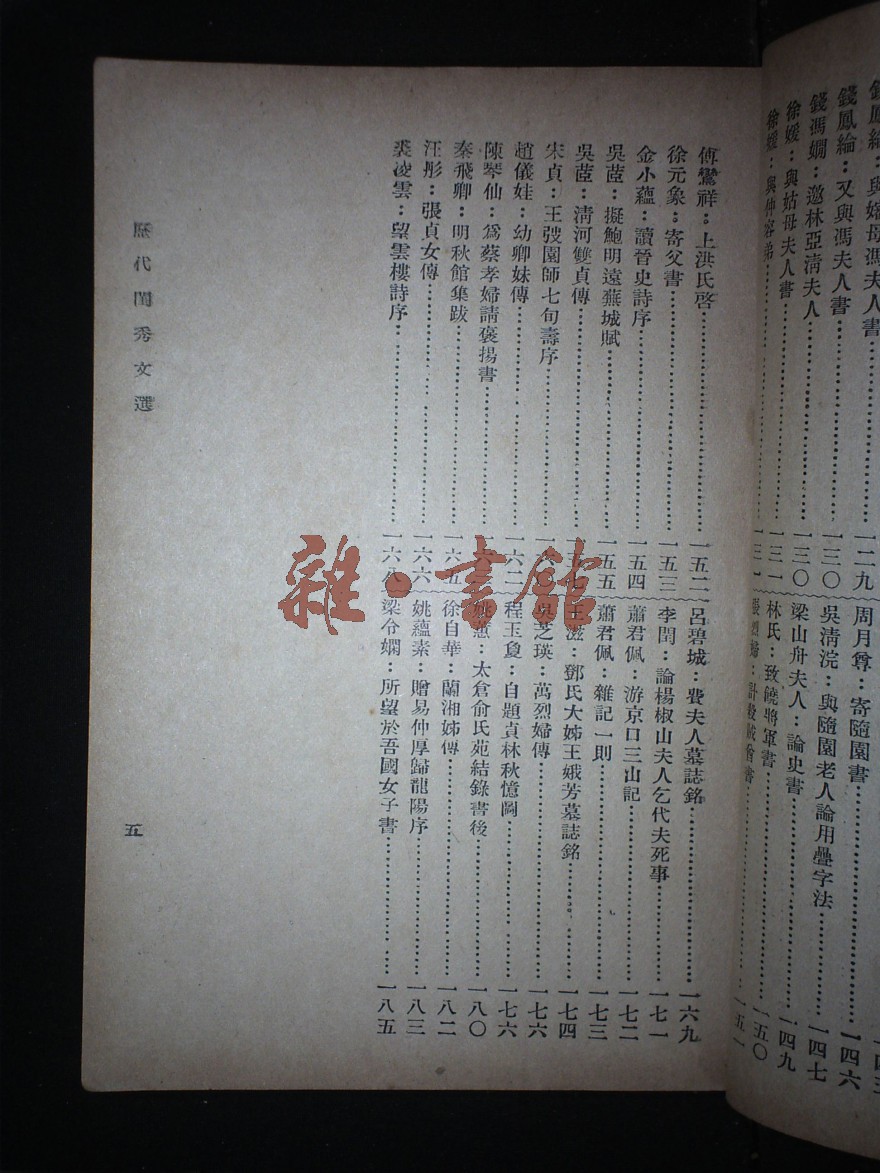 錢鳳綸：與嫂母馮夫人書
錢鳳綸：又與馮夫人書……一二九
錢馮嫻：邀林亞清夫人……一三〇
徐媛：與姑母夫人書……一三一
徐媛：與仲容弟……一三一
周月尊：寄隨園書……一四六
吳清浣：與隨園老人論用疊字法……一四七
梁山舟夫人：論史書……一四九
林氏：致饒將軍書……一五〇
傅鸞祥：上洪氏啓……一五二
徐元象：寄父書……一五三
金小蘊：讀晉史詩序……一五四
吳茝：擬鮑明遠蕪城賦……一五五
吳茝：清河雙貞傳……一五七
宋貞：王弢園師七旬壽序……一六〇
趙儀姞：幼卿妹傳……一六二
陳琴仙：爲蔡孝婦請褒揚書
秦飛卿：明秋館集跋……一六五
汪彤：張貞女傳……一六六
裘凌雲：望雲樓詩序……一六八
呂碧城：費夫人墓誌銘……一六九
李閏：論楊椒山夫人乞代夫死事……一七一
蕭君佩：游京口三山記……一七二
蕭君佩：雜記一則……一七三
王滋：鄧氏大姊王娥芳墓誌銘……一七四
吳芝瑛：萬烈婦傳……一七六
程玉敻：自題貞林秋憶圖……一七六
姚蕙：太倉俞氏苑結錄書後……一八〇
徐自華：蘭湘姊傳……一八二
姚蘊素：贈易仲厚歸龍陽序……一八三
梁令嫻：所望於吾國女子書……一八五
歷代閨秀文選
五
雜·書館